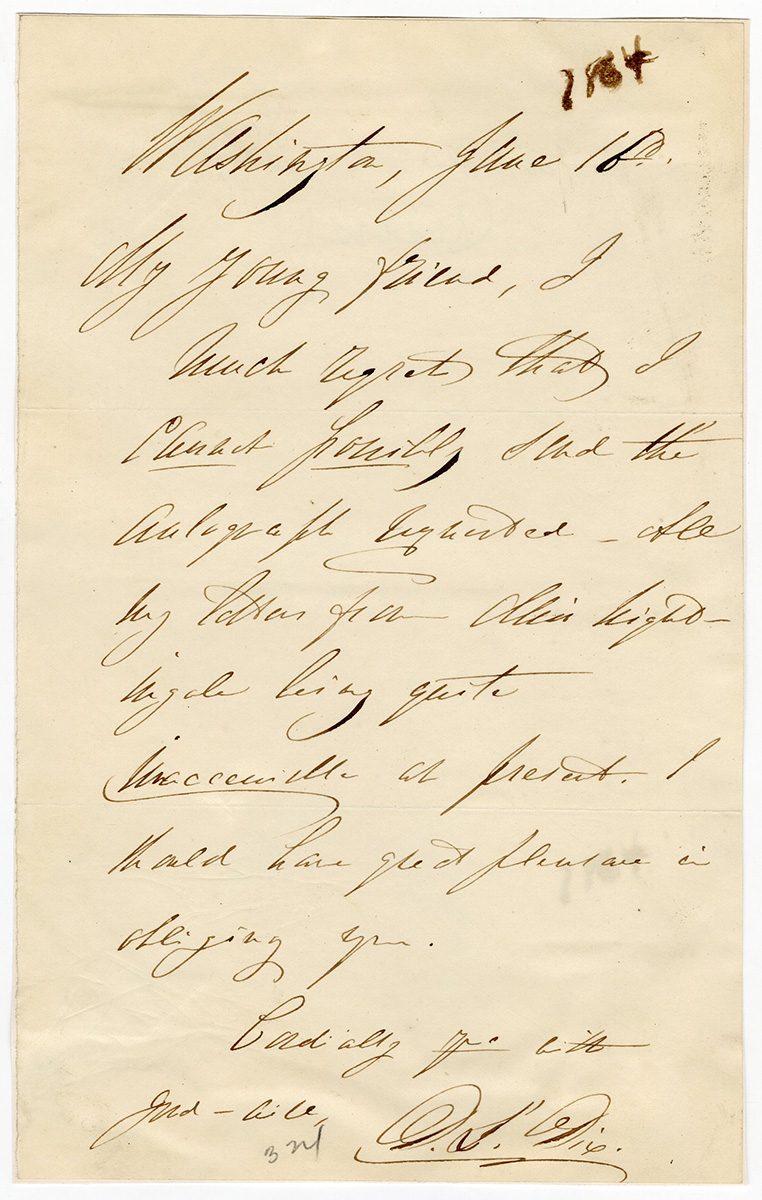 1864
Washington, June 16th.
My young friend, I
Much regret that I
Cannot possibly send the
Autograph requested – All
my letters from Miss Night-
ingale being quite
inaccessible at present. I
should have great pleasure in
obliging you.
Cordially with
good-will,
D. L. Dix.